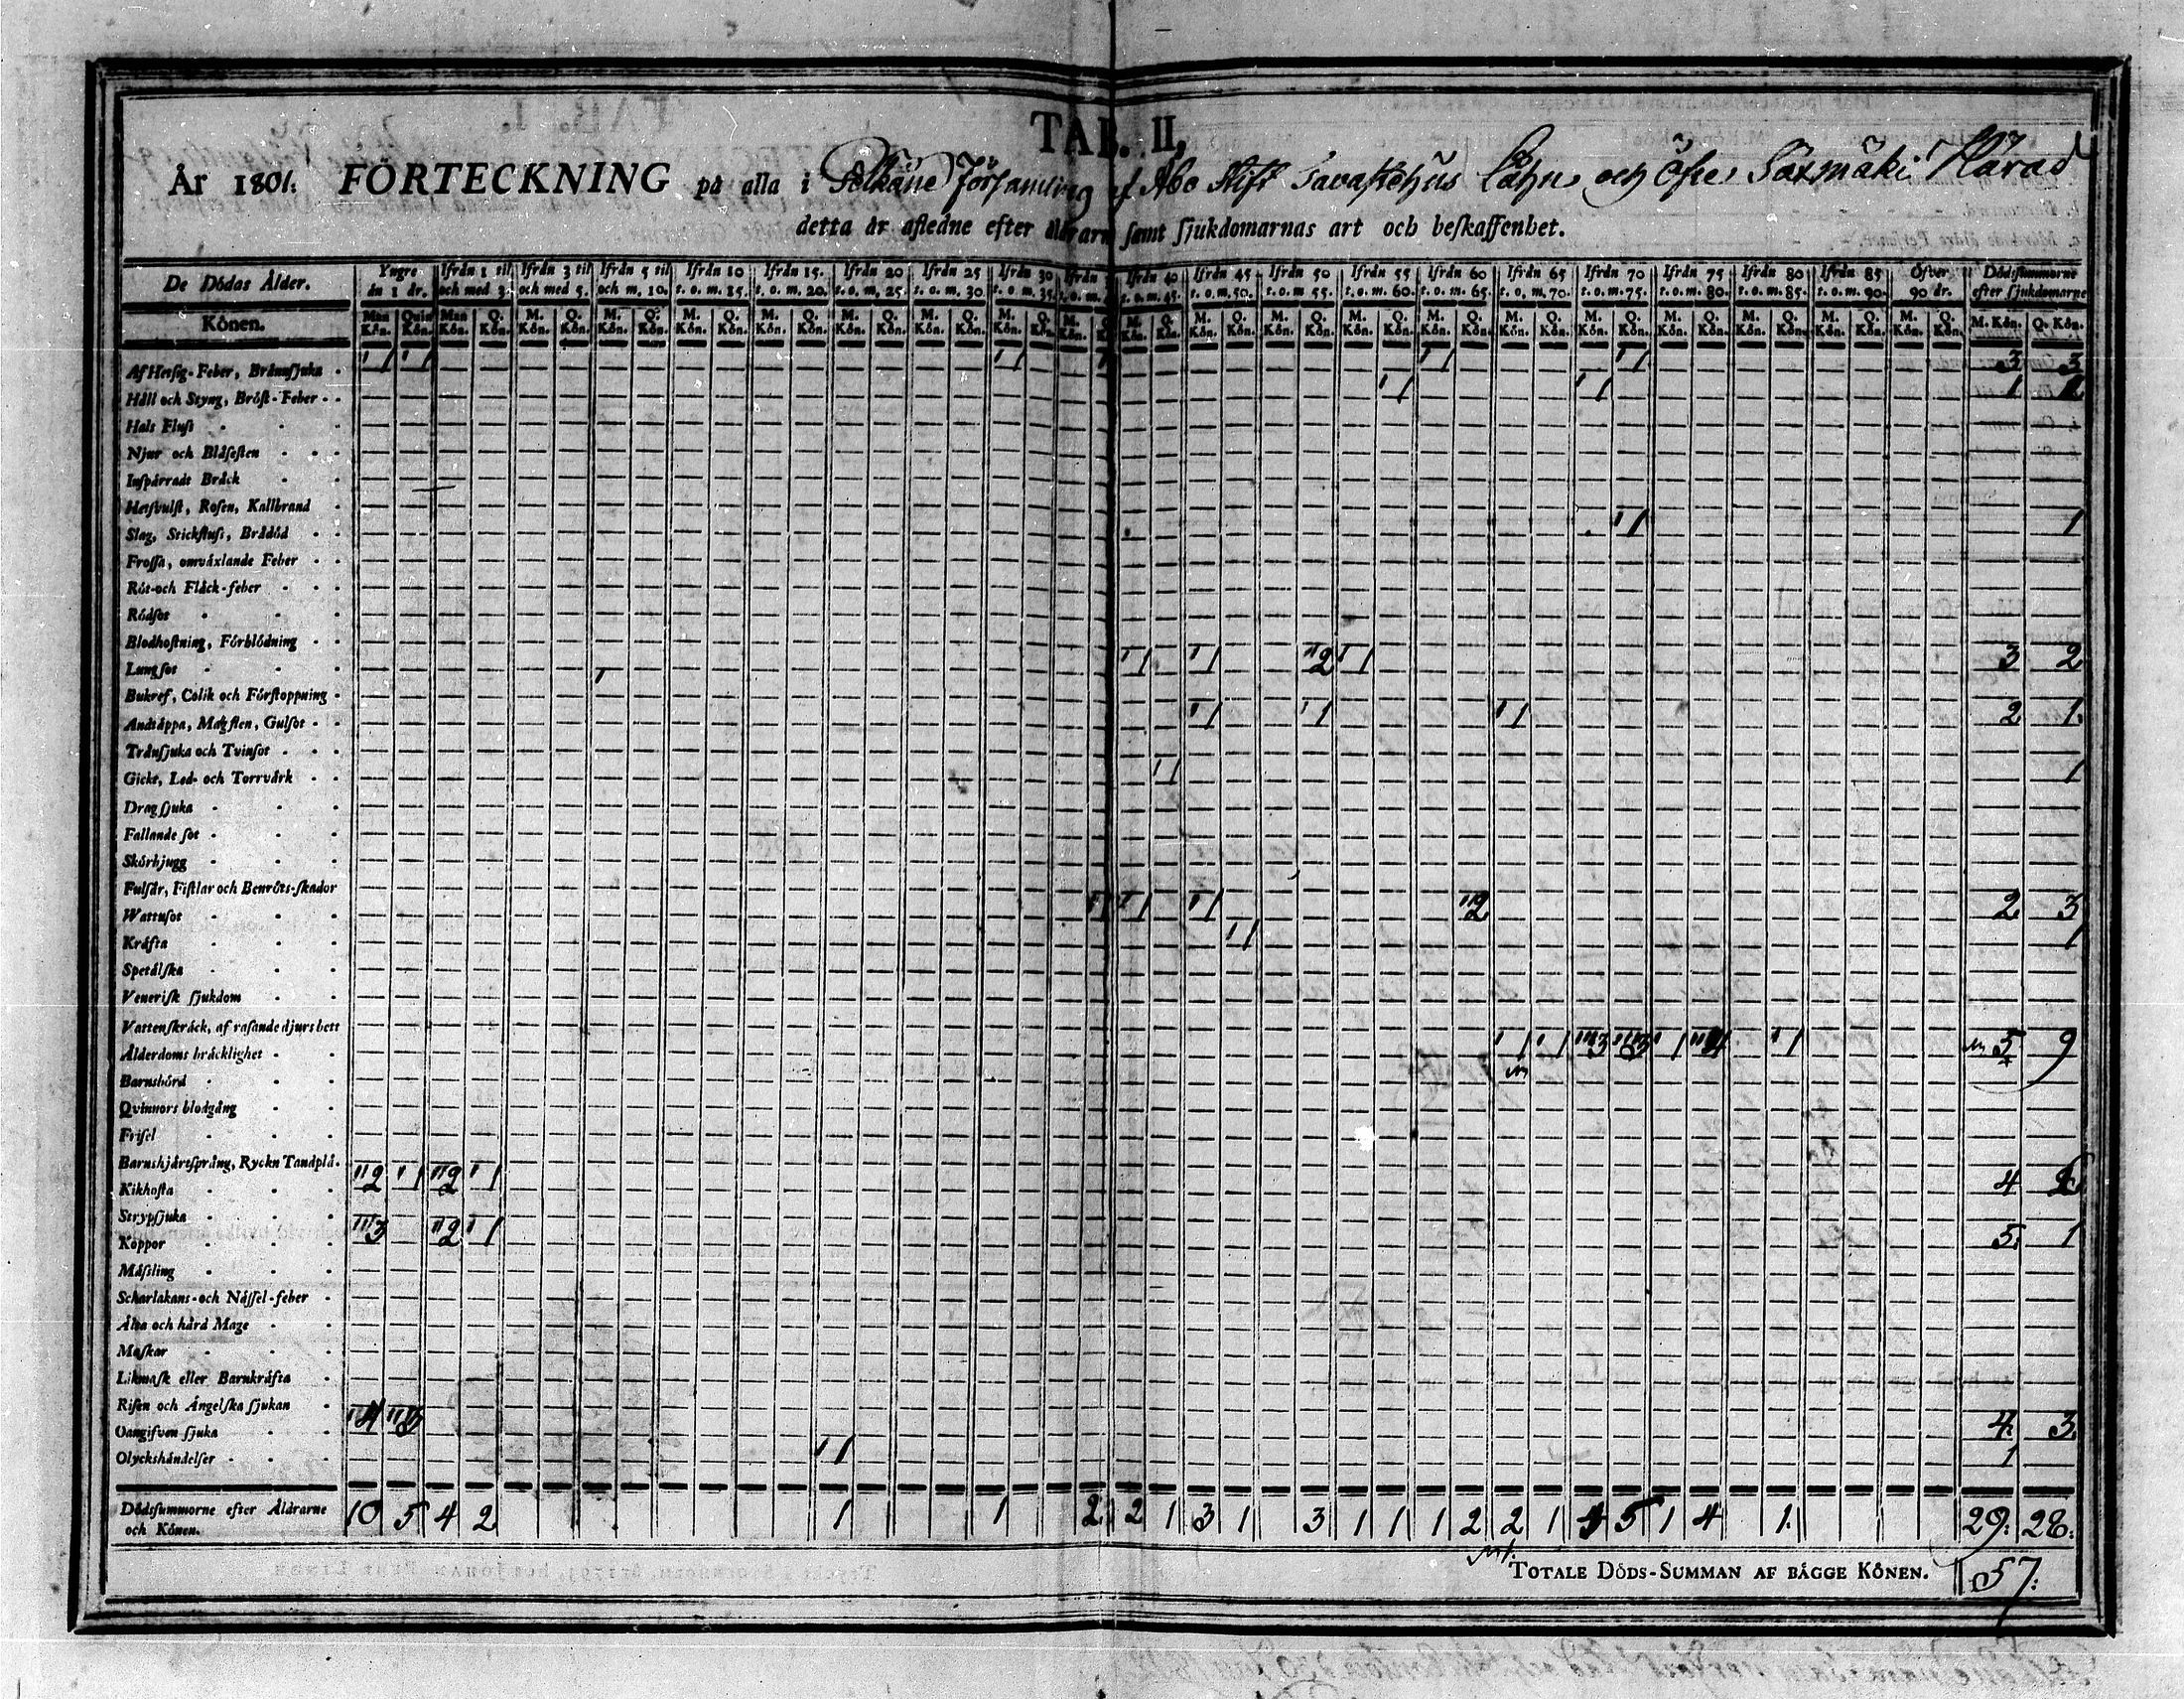 TAB. II,
År 1801. FÖRTECKNING på alla i Pelkäne Församling af Åbo Stift Tavastehus Lähn och Öfre Säxmäki Härad
detta år afledne efter åldrarne samt sjukdomarnas art och beskaffenhet.
De Dödas Ålder. Yngre än 1 år. Ifrån 1 til och med 3. Ifrån 3 til och med 5. Ifrån 5 til och m. 10. Ifrån 10 t. o. m. 15. Ifrån 15. t. o. m. 20. Ifrån 20 t. o. m. 25. Ifrån 25 t. o. m. 30 Ifrån 30 t. o. m. 35. Ifrån t. o. m. Ifrån 40 t. o. m. 45. Ifrån 45 t. o. m. 50. Ifrån 50 t. o. m. 55. Ifrån 55 t. o. m. 60. Ifrån 60 t. o. m. 65. Ifrån 65 t. o. m. 70. Ifrån 70 t. o. m. 75. Ifrån 75 t. o. m. 80. Ifrån 80 t. o. m. 85. Ifrån 85 t. o. m. 90. Öfver 90 år. Dödssummorne efter sjukdomarne
Könen. Man Kön. Quin Kön. Man Kön. Q. Kön. M. Kön. Q. Kön. M. Kön. Q. Kön. M. Kön. Q. Kön. M. Kön. Q. Kön. M. Kön. Q. Kön. M. Kön. Q. Kön. M. Kön. Q. Kön. M. Kön. M. Kön. Q. Kön. M. Kön. Q. Kön. M. Kön. Q. Kön. M. Kön. Q. Kön. M. Kön. Q. Kön. M. Kön. Q. Kön. M. Kön. Q. Kön. M. Kön. Q. Kön. M. Kön. Q. Kön. M. Kön. Q. Kön. M. Kön. Q. Kön. M. Kön. Q. Kön.
Af Hetsig-Feber, Brännsjuka 1 1 1 1 1 1 3 3
Håll och Styng, Bröst-Feber 1 1 1
Hals Fluss
Njur och Blåsesten
Inspärradt Bråck
Hetsvulst, Rosen, Kallbrand
Slag, Stickfluss, Brådöd 1 1
Frossa, omväxlande Feber
Röt-och Fläck-feber
Rödsot
Blodhostning, Förblödning
Lungsot 1 1 2 1 3 2
Bukref, Colik och Förstoppning
Andtäppa, Magsten, Gulsot 1 1 1 2 1
Trånsjuka och Tvinsot
Gickt, Led- och Torrvärk 1 1
Dragsjuka
Fallande sot
Skörbjugg
Fulsår, Fistlar och Benröts-skador
Wattusot 1 1 1 2 2 3
Kräfta 1 1
Spetälska
Venerisk sjukdom
Vattenskräck, af rasande djurs bett
Ålderdoms bräcklighet 1 1 3 3 1 4 1 5 9
Barnsbörd
Qvinnors blodgång
Frisel
Barnshjärtsprång, Ryckn Tandplå.
Kikhosta 2 1 2 1 4 2
Strypsjuka
Koppor 3 2 1 5 1
Mässling
Scharlakans-och Nässel-feber
Älta och hård Mage
Maskar
Likmask eller Barnkräfta
Risen och Ängelska sjukan
Oangifven sjuka 4 3 4 3
Olyckshändelser 1 1
Dödssummorne efter Åldrarne och Könen. 10 5 4 2 1 1 2 2 1 3 1 3 1 1 1 2 2 1 4 5 1 4 1 29. 28.
TOTALE DÖDS-SUMMAN AF BÄGGE KÖNEN. 57.